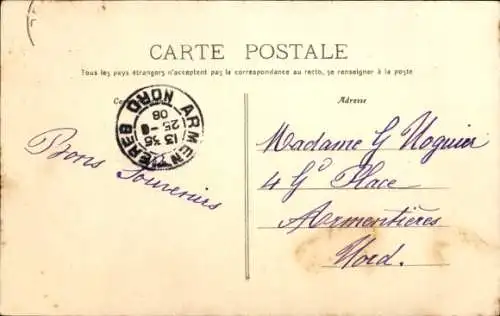 CARTE POSTALE
Tous les pays étrangers n'acceptent pas la correspondance au recto, se renseigner à la poste
Adresse
ARMENTIERES NORD
13 35
25 -8
08
Bons
Souvenirs
Madame G
4 Gd Place
Armentières
Nord.